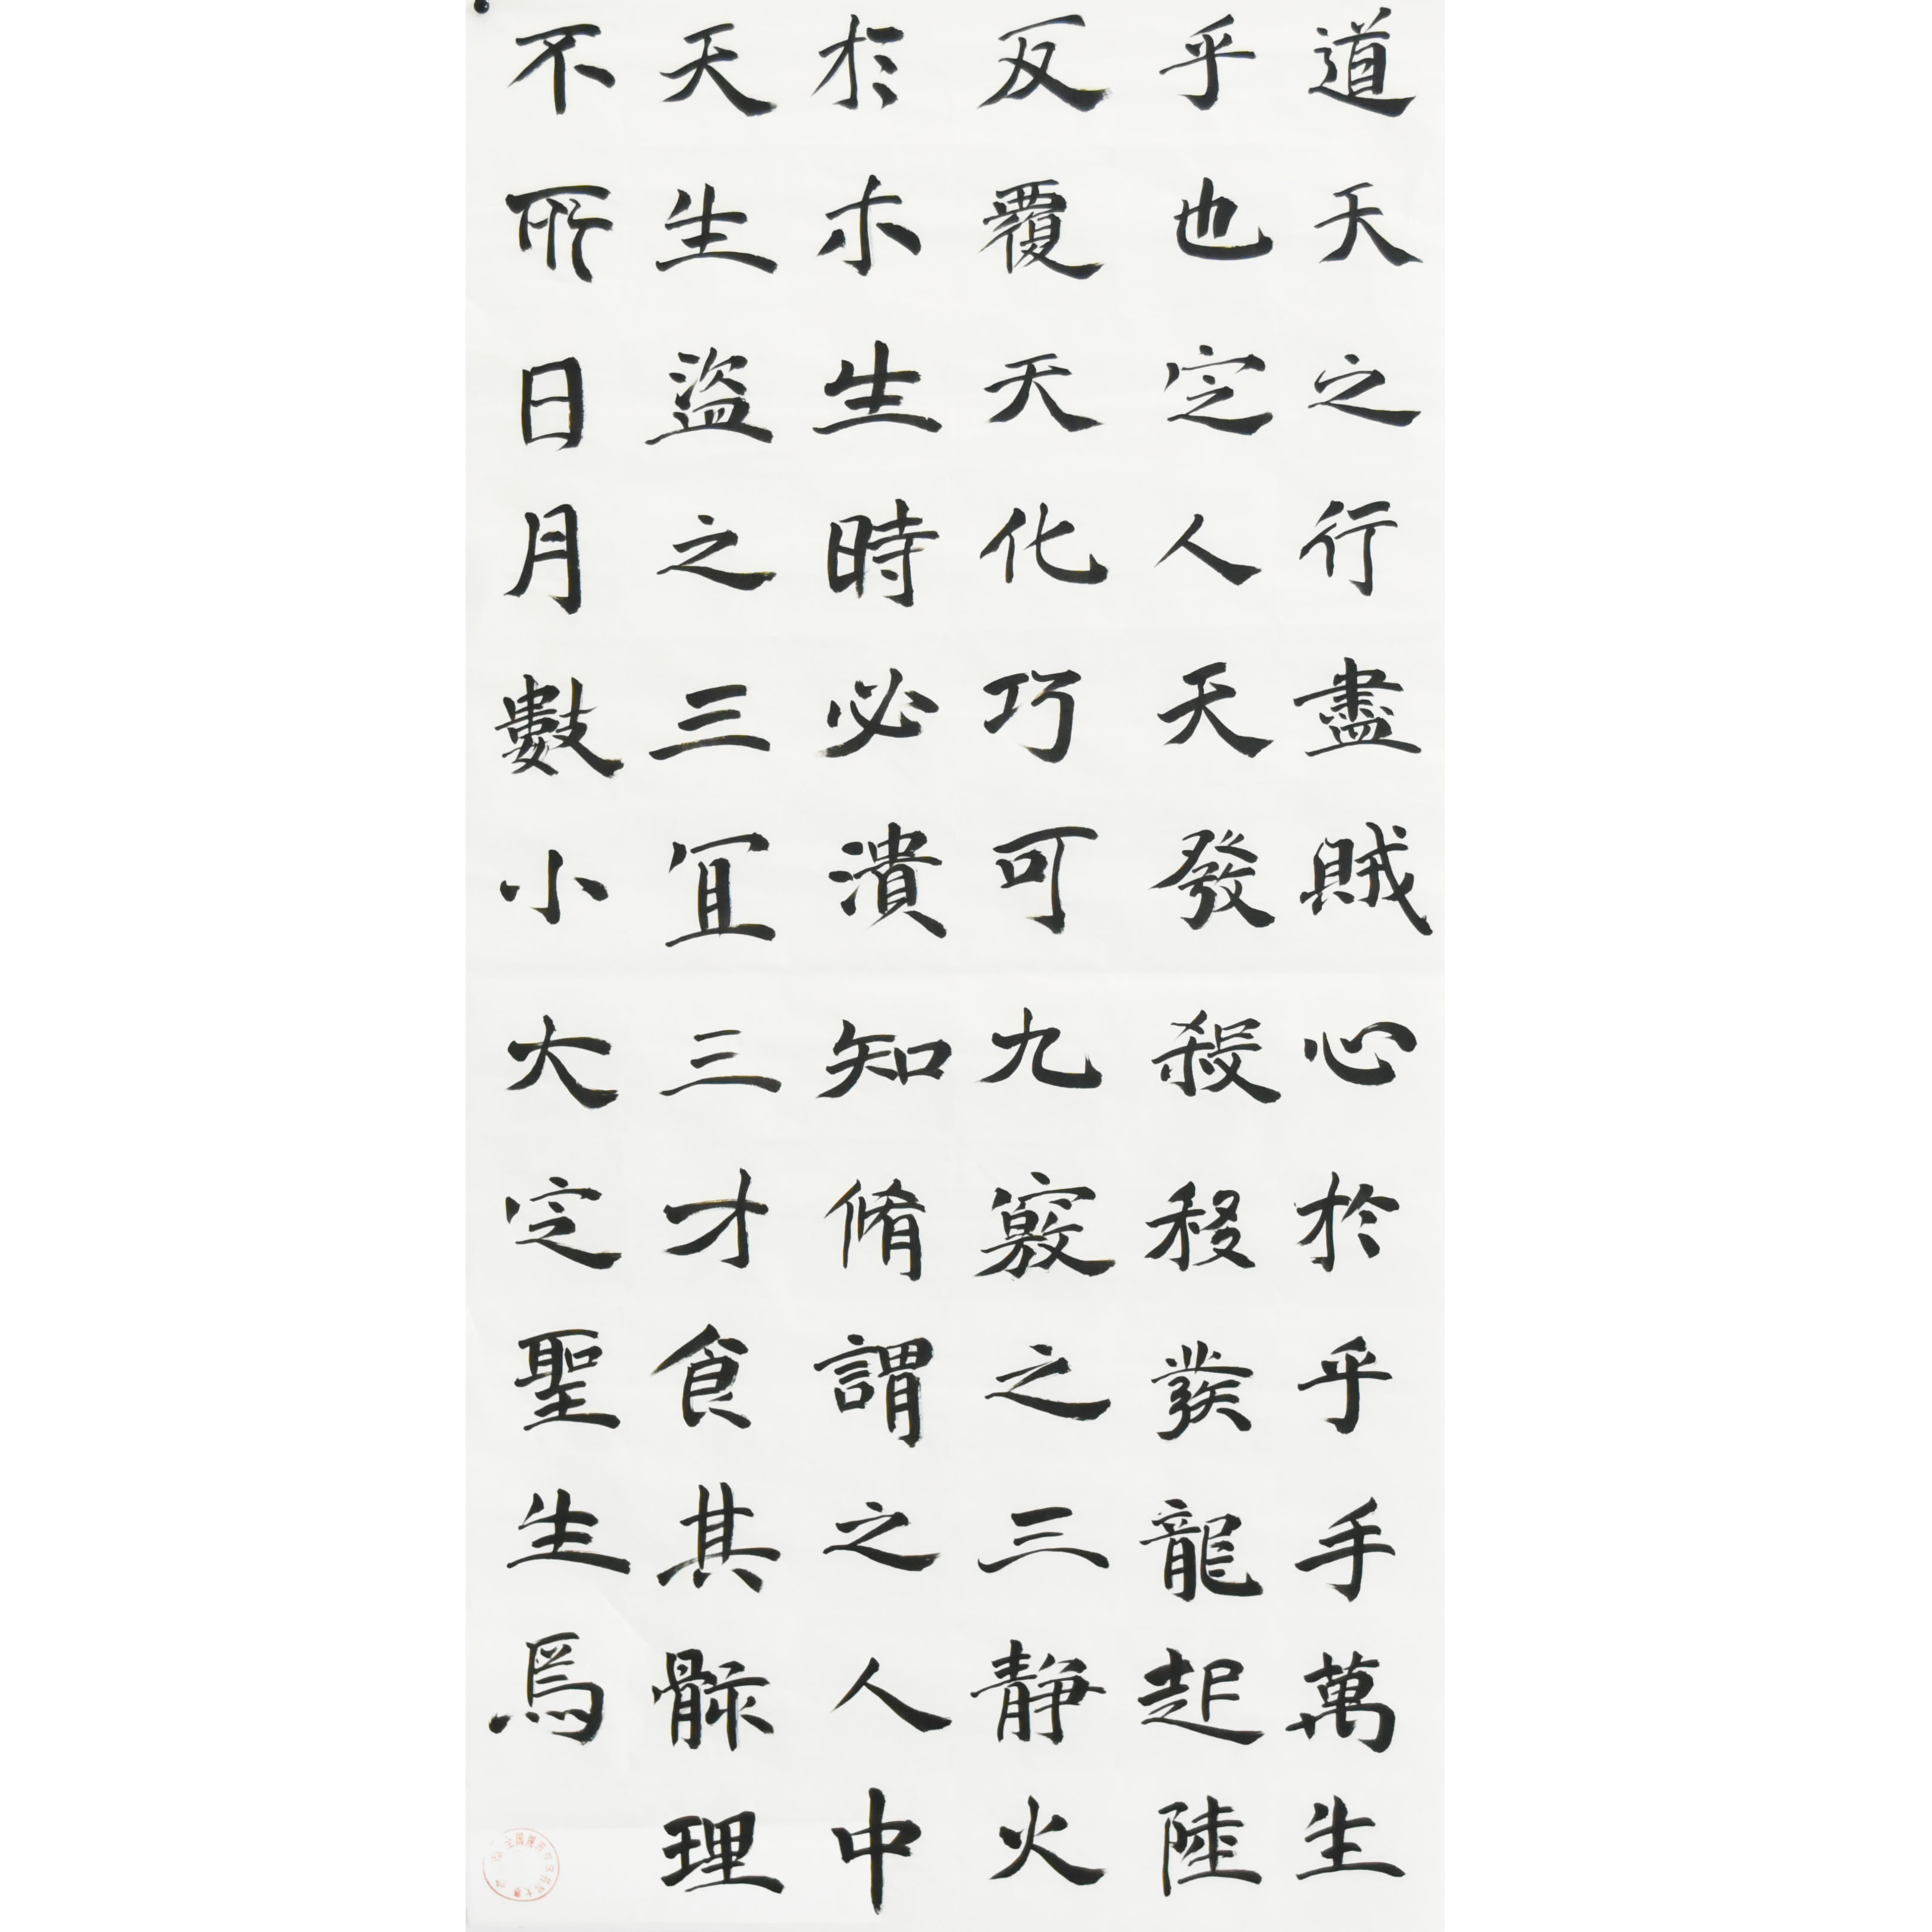 道天之行盡賊心於乎手萬生
乎也定人天發殺移發龍起陸
反覆天化巧可九竅之三静火
於木生時必潰知脩謂之人中
天生盜之三宜三才食其骸理
不所日月數小大定聖生焉